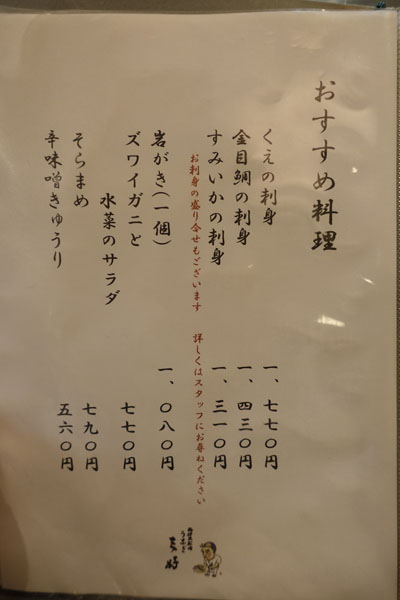 おすすめ料理
くえの刺身 一、七七〇円
金目鯛の刺身 一、四三〇円
すみいかの刺身 一、三一〇円
お刺身の盛り合せもございます 詳しくはスタッフにお尋ねください
岩がき(一個) 一、〇八〇円
ズワイガニと
水菜のサラダ 七七〇円
そらまめ 七九〇円
辛味噌きゅうり 五六〇円